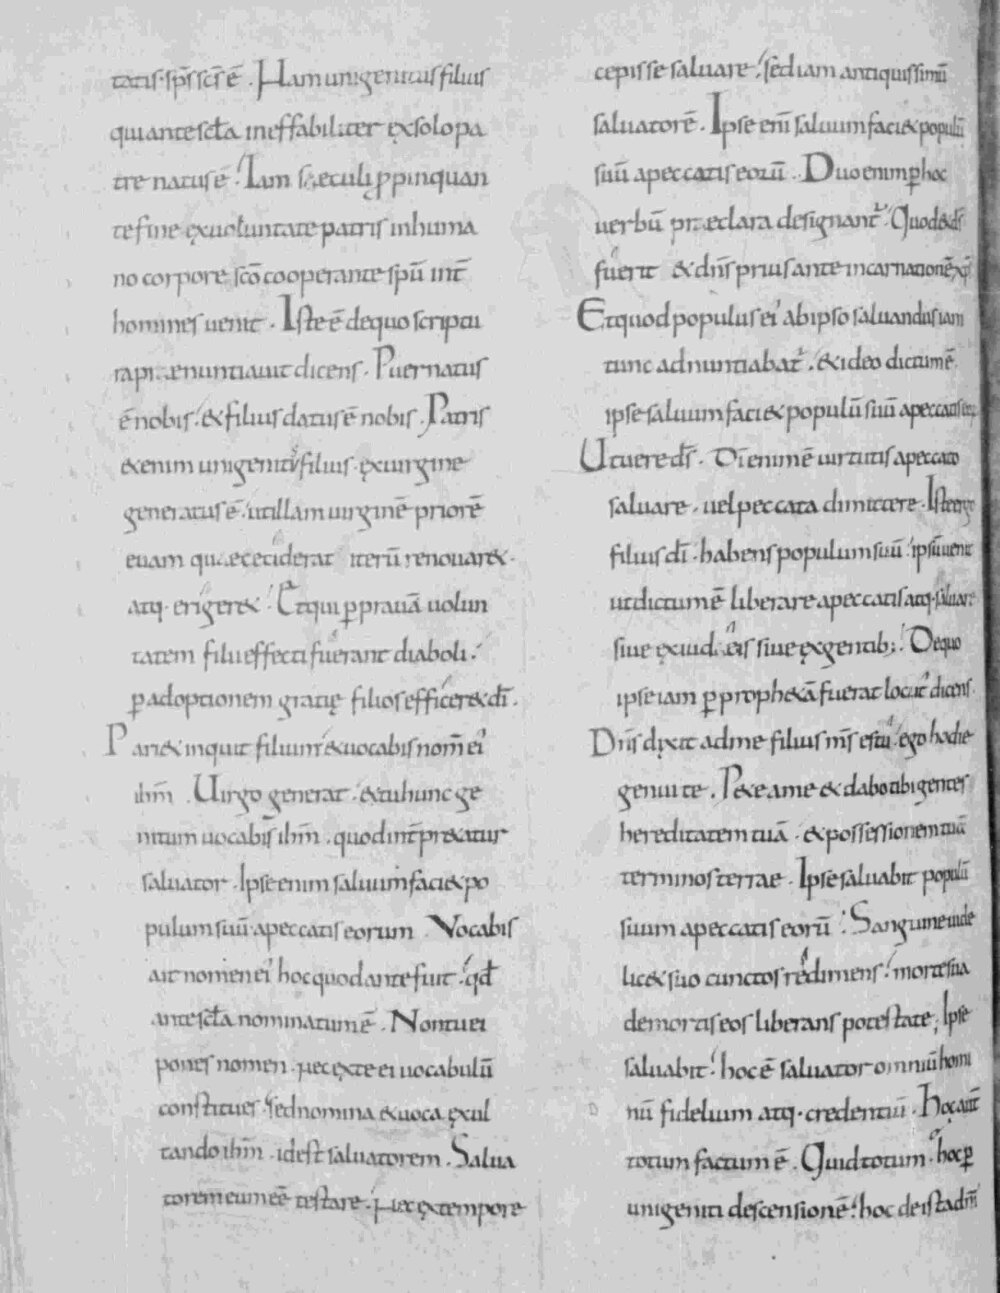 tatis· sp̄s sc̄s ē . Nam unigenitus filius
qui ante sc̄la ineffabiliter ex solo pa
tre natus ē . Iam sæculi ꝓpinquan
te fine ex uoluntate patris in huma
no corpore sc̄o cooperante sp̄u int̄
homines uenit . Iste ē de quo scriptu
ra prænuntiauit dicens . Puer natus
ē nobis . & filius datus ē nobis . Patris
& enim unigenitus filius . ex uirgine
generatus ē . ut illam uirginē priorē
euam quæ ceciderat iterū renouar&.
atq· eriger& . Et qui ꝑ prauā uolun
tatem filii effecti fuerant diaboli .
ꝑ adoptionem gratię filios effícer& dī .
Pari& inquit filium & uocabis nom̄ ei'
ihm̄ . Uirgo generat . & tu hunc ge
nitum uocabis ihm̄ . quod int̄pr&atur
saluator . Ipse enim saluum faci& po
pulum suū a peccatis eorum . Vocabis
ait nomen ei' hoc quod ante fuit . qđ
ante sc̄la nominatum ē . Non tu ei
pones nomen . nec ex te ei uocabulū
constitues . sed nomina & uoca exul
tando ihm̄ . id est saluatorem . Salua
torem eum eē testare . nec ex tempore
cepisse saluare . sed iam antiquissimū
saluatorē . Ipse enī saluum faci& populū
suū a peccatis eorū . Duo enim ꝑ hoc
uerbū præclara designant̄ . Quod & ds̄
fuerit & dn̄s prius ante incarnationē xp̄i
Et quod populus ei' ab ipso saluandus iam
tunc adnuntiabat̄ . & ideo dictum ē
ipse saluum faci& populū suū a peccatis eoꝝ
Ut uere ds̄ . Dī enim ē uirtutis a peccato
saluare . uel peccata dimittere . Iste ergo
filius dī . habens populum suū . ipsū uenit
ut dictum ē liberare a peccatis atq· saluare
siue ex iudæis siue ex gentib; . De quo
ipse iam ꝑ proph&ā fuerat locut' dicens .
Dn̄s dixit ad me filius m̄s es tu . ego hodie
genui te . P&e a me & dabo tibi gentes
hereditatem tuā . & possessionem tuā
terminos terrae . Ipse saluabit populū
suum a peccatis eorū . Sanguine uide
lic& suo cunctos redimens . morte sua
de mortis eos liberans potestate ; Ipse
saluabit . hoc ē saluator omniū homi
nū fidelium atq· credentiū . Hoc aut̄
totum factum ē . Quid totum . hoc ꝑ
unigeniti descensionē . hoc de ista